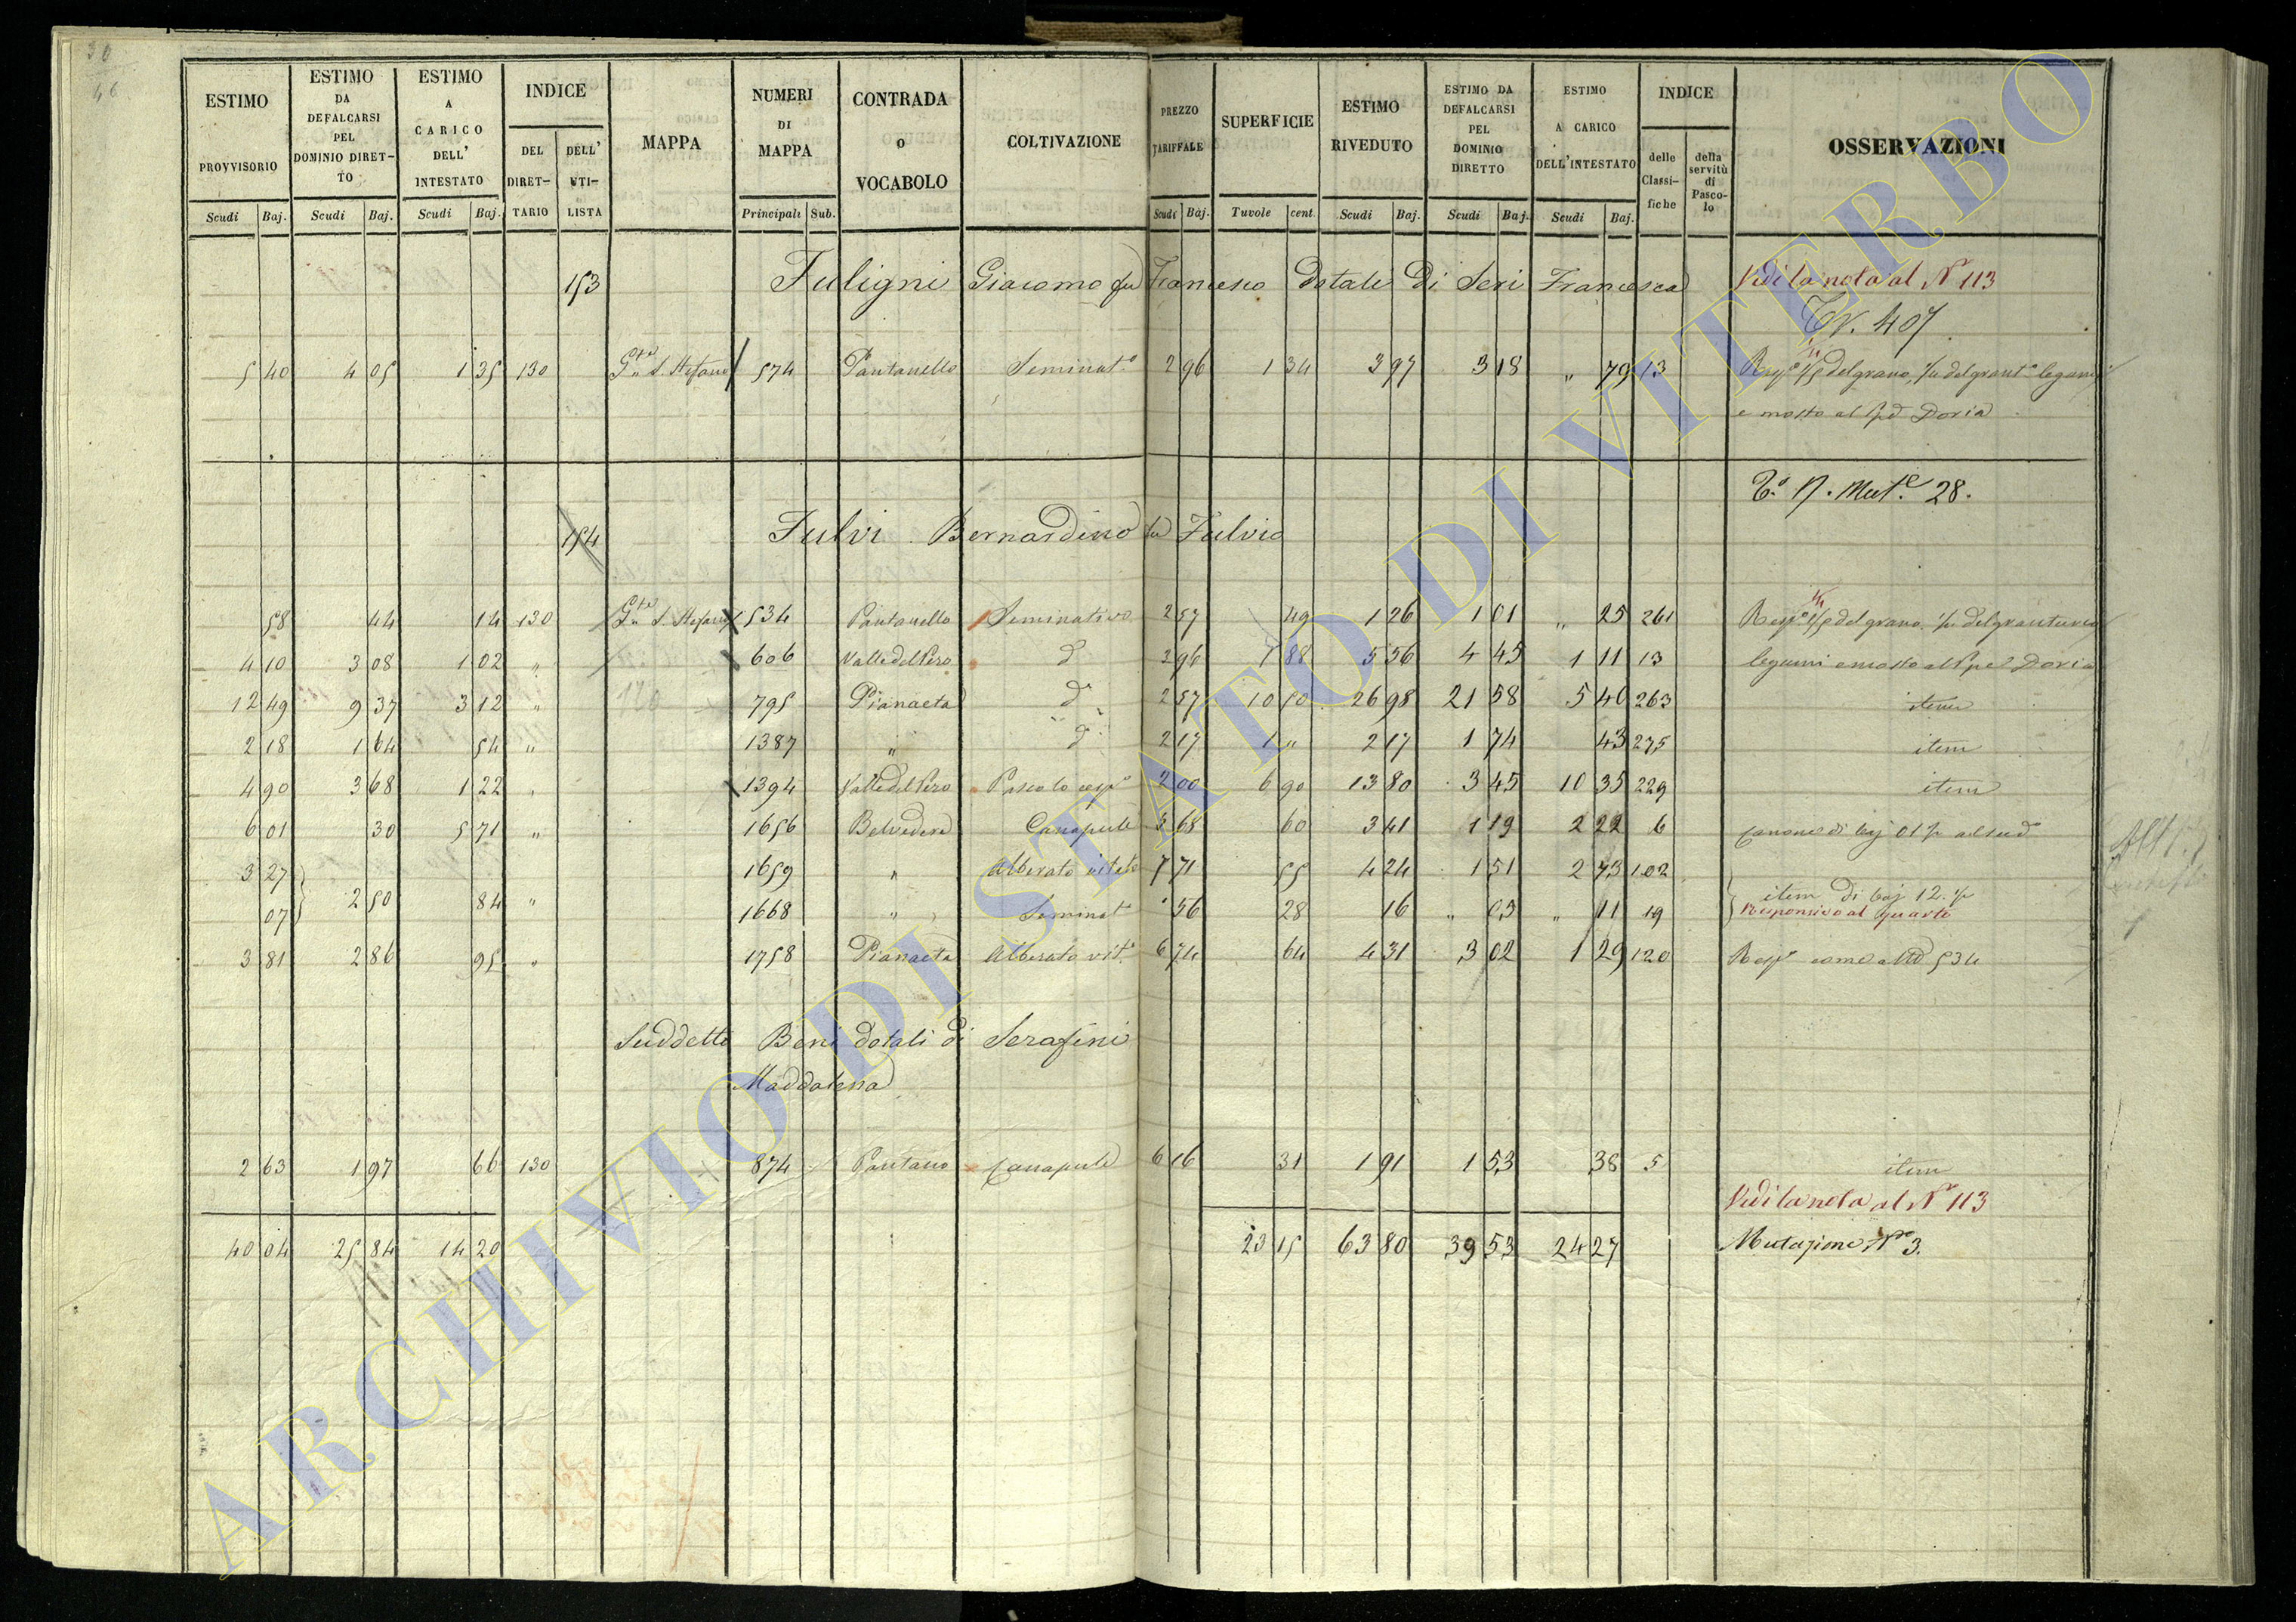 30
46
ESTIMO PROVVISORIO Scudi Baj.
ESTIMO DA DEFALCARSI PEL DOMINIO DIRETTO Scudi Baj.
ESTIMO A CARICO DELL' INTESTATO Scudi Baj.
INDICE DEL DIRETTARIO DELL' UTILISTA
MAPPA
NUMERI DI MAPPA Principali Sub.
CONTRADA o VOCABOLO
COLTIVAZIONE
PREZZO TARIFFALE Scudi Baj.
SUPERFICIE Tavole cent.
ESTIMO RIVEDUTO Scudi Baj.
ESTIMO DA DEFALCARSI PEL DOMINIO DIRETTO Scudi Baj.
ESTIMO A CARICO DELL'INTESTATO Scudi Baj.
INDICE delle Classifiche della servitù di Pascolo
OSSERVAZIONI
153 Fuligni Giacomo fu Francesco Dotali Di Seri Francesca Vedi la nota al N° 113
407
5 40 4 05 1 35 130 S. Stefano 574 Pantanello Seminat° 2 96 1 34 3 97 3 18 " 79 13 Resp° 1/5 del grano, del grant° legumi
e mosto al Doria
T° n. Mut.e 28.
154 Fulvi Bernardino fu Fulvio
58 44 14 130 S. Stefano 534 Pantanello Seminativo 2 57 49 1 26 1 01 " 25 261 Resp° 1/5 del grano del granturco
4 10 3 08 1 02 " 606 Valle del Pero d° 2 96 1 88 5 56 4 45 1 11 13 legumi e mosto al Doria
12 49 9 37 3 12 " 795 Pianaeta d° 2 57 10 50 26 98 21 58 5 40 263 item
2 18 1 64 54 " 1387 " d° 2 17 1 " 2 17 1 74 43 275 item
4 90 3 68 1 22 " 1394 Valle del Pero Pascolo cesp° 2 00 6 90 13 80 3 45 10 35 229 item
6 01 30 5 71 " 1656 Belvedere Canapule 5 68 60 3 41 1 19 2 22 6 canone di baj 01 al sud°
3 27 1659 " Alberato vitato 7 71 55 4 24 1 51 2 73 102
2 50 84 " item di baj 12
07 1668 " Seminat° 56 28 16 " 05 " 11 19 Responsivo al quarto
3 81 2 86 95 " 1758 Pianaeta Alberato vit.° 6 74 64 4 31 3 02 1 29 120 Resp° come al N° 534
Suddetto Beni dotali di Serafini
Maddalena
2 63 1 97 66 130 874 Pantano Canapule 6 16 31 1 91 1 53 38 5 item
Vedi la nota al N° 113
40 04 25 84 14 20 23 15 63 80 39 53 24 27 Mutazione N° 3.
ARCHIVIO DI STATO DI VITERBO